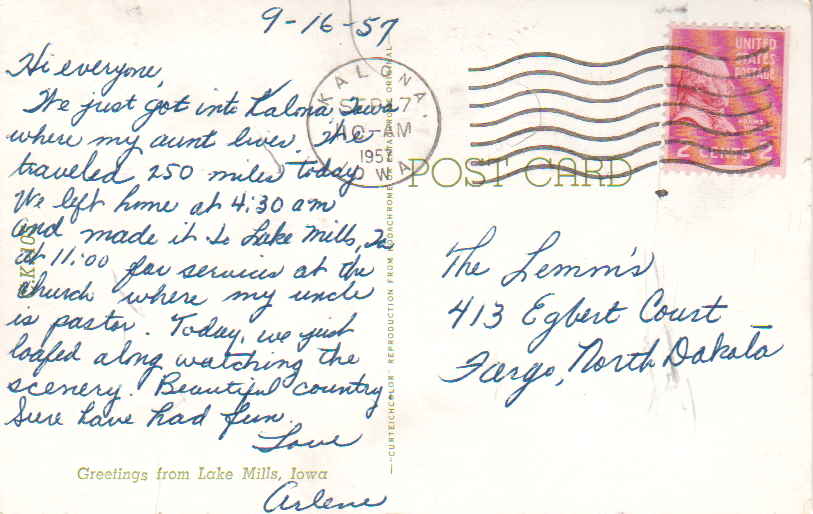 9-16-57
Hi everyone,
We just got into Kalona, Iowa
where my aunt lives. We
traveled 250 miles today
We left home at 4:30 am
and made it to Lake Mills, Ia.
at 11:00 for services at the
church where my uncle
is pastor. Today, we just
loafed along watching the
scenery. Beautiful country
Sure have had fun.
Love
Arlene
Greetings from Lake Mills, Iowa
"CURTEICHCOLOR" REPRODUCTION FROM KODACHROME OR EKTACHROME ORIGINAL
KALONA
SEP 17
10-AM
1957
IOWA
UNITED
STATES
POSTAGE
2 CENTS 2
POST CARD
The Lemm's
413 Egbert Court
Fargo, North Dakota